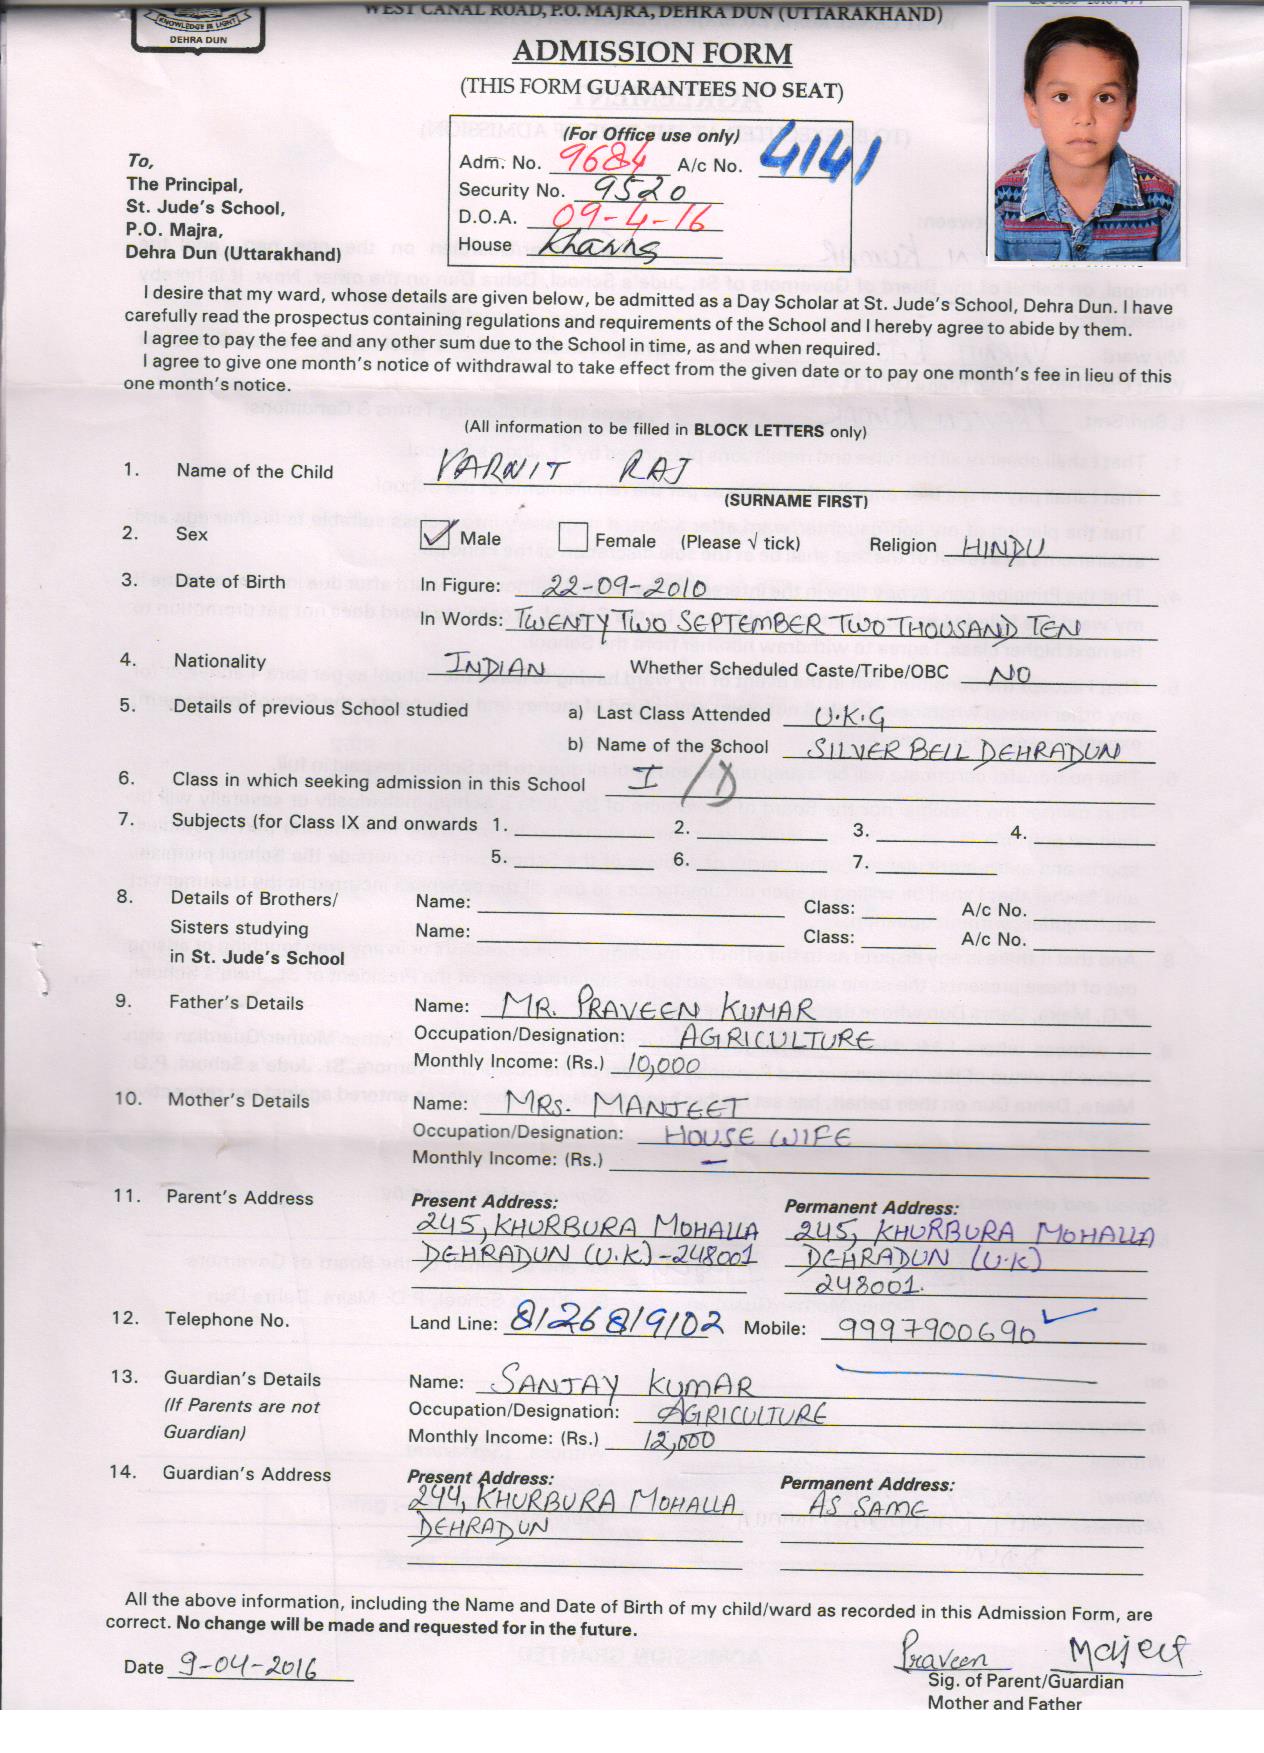 KNOWLEDGE IS LIGHT
DEHRA DUN
WEST CANAL ROAD, P.O. MAJRA, DEHRA DUN (UTTARAKHAND)
ADMISSION FORM
(THIS FORM GUARANTEES NO SEAT)
(For Office use only)
Adm. No. 9684 A/c No. 4141
Security No. 9520
D.O.A. 09-4-16
House
To,
The Principal,
St. Jude's School,
P.O. Majra,
Dehra Dun (Uttarakhand)
I desire that my ward, whose details are given below, be admitted as a Day Scholar at St. Jude's School, Dehra Dun. I have
carefully read the prospectus containing regulations and requirements of the School and I hereby agree to abide by them.
I agree to pay the fee and any other sum due to the School in time, as and when required.
I agree to give one month's notice of withdrawal to take effect from the given date or to pay one month's fee in lieu of this
one month's notice.
(All information to be filled in BLOCK LETTERS only)
1. Name of the Child VARNIT RAJ
(SURNAME FIRST)
2. Sex Male Female (Please √ tick) Religion HINDU
3. Date of Birth In Figure: 22-09-2010
In Words: TWENTY TWO SEPTEMBER TWO THOUSAND TEN
4. Nationality INDIAN Whether Scheduled Caste/Tribe/OBC NO
5. Details of previous School studied a) Last Class Attended U.K.G
b) Name of the School SILVER BELL DEHRADUN
6. Class in which seeking admission in this School I /D
7. Subjects (for Class IX and onwards 1. 2. 3. 4.
5. 6. 7.
8. Details of Brothers/ Name: Class: A/c No.
Sisters studying Name: Class: A/c No.
in St. Jude's School
9. Father's Details Name: MR. PRAVEEN KUMAR
Occupation/Designation: AGRICULTURE
Monthly Income: (Rs.) 10,000
10. Mother's Details Name: MRS. MANJEET
Occupation/Designation: HOUSE WIFE
Monthly Income: (Rs.) —
11. Parent's Address Present Address: Permanent Address:
245, KHURBURA MOHALLA 245, KHURBURA MOHALLA
DEHRADUN (U.K)-248001 DEHRADUN (U.K)
248001.
12. Telephone No. Land Line: 8126819102 Mobile: 9997900690
13. Guardian's Details Name: SANJAY KUMAR
(If Parents are not Occupation/Designation: AGRICULTURE
Guardian) Monthly Income: (Rs.) 12,000
14. Guardian's Address Present Address: Permanent Address:
244, KHURBURA MOHALLA AS SAME
DEHRADUN
All the above information, including the Name and Date of Birth of my child/ward as recorded in this Admission Form, are
correct. No change will be made and requested for in the future.
Date 9-04-2016 Praveen Manjeet
Sig. of Parent/Guardian
Mother and Father